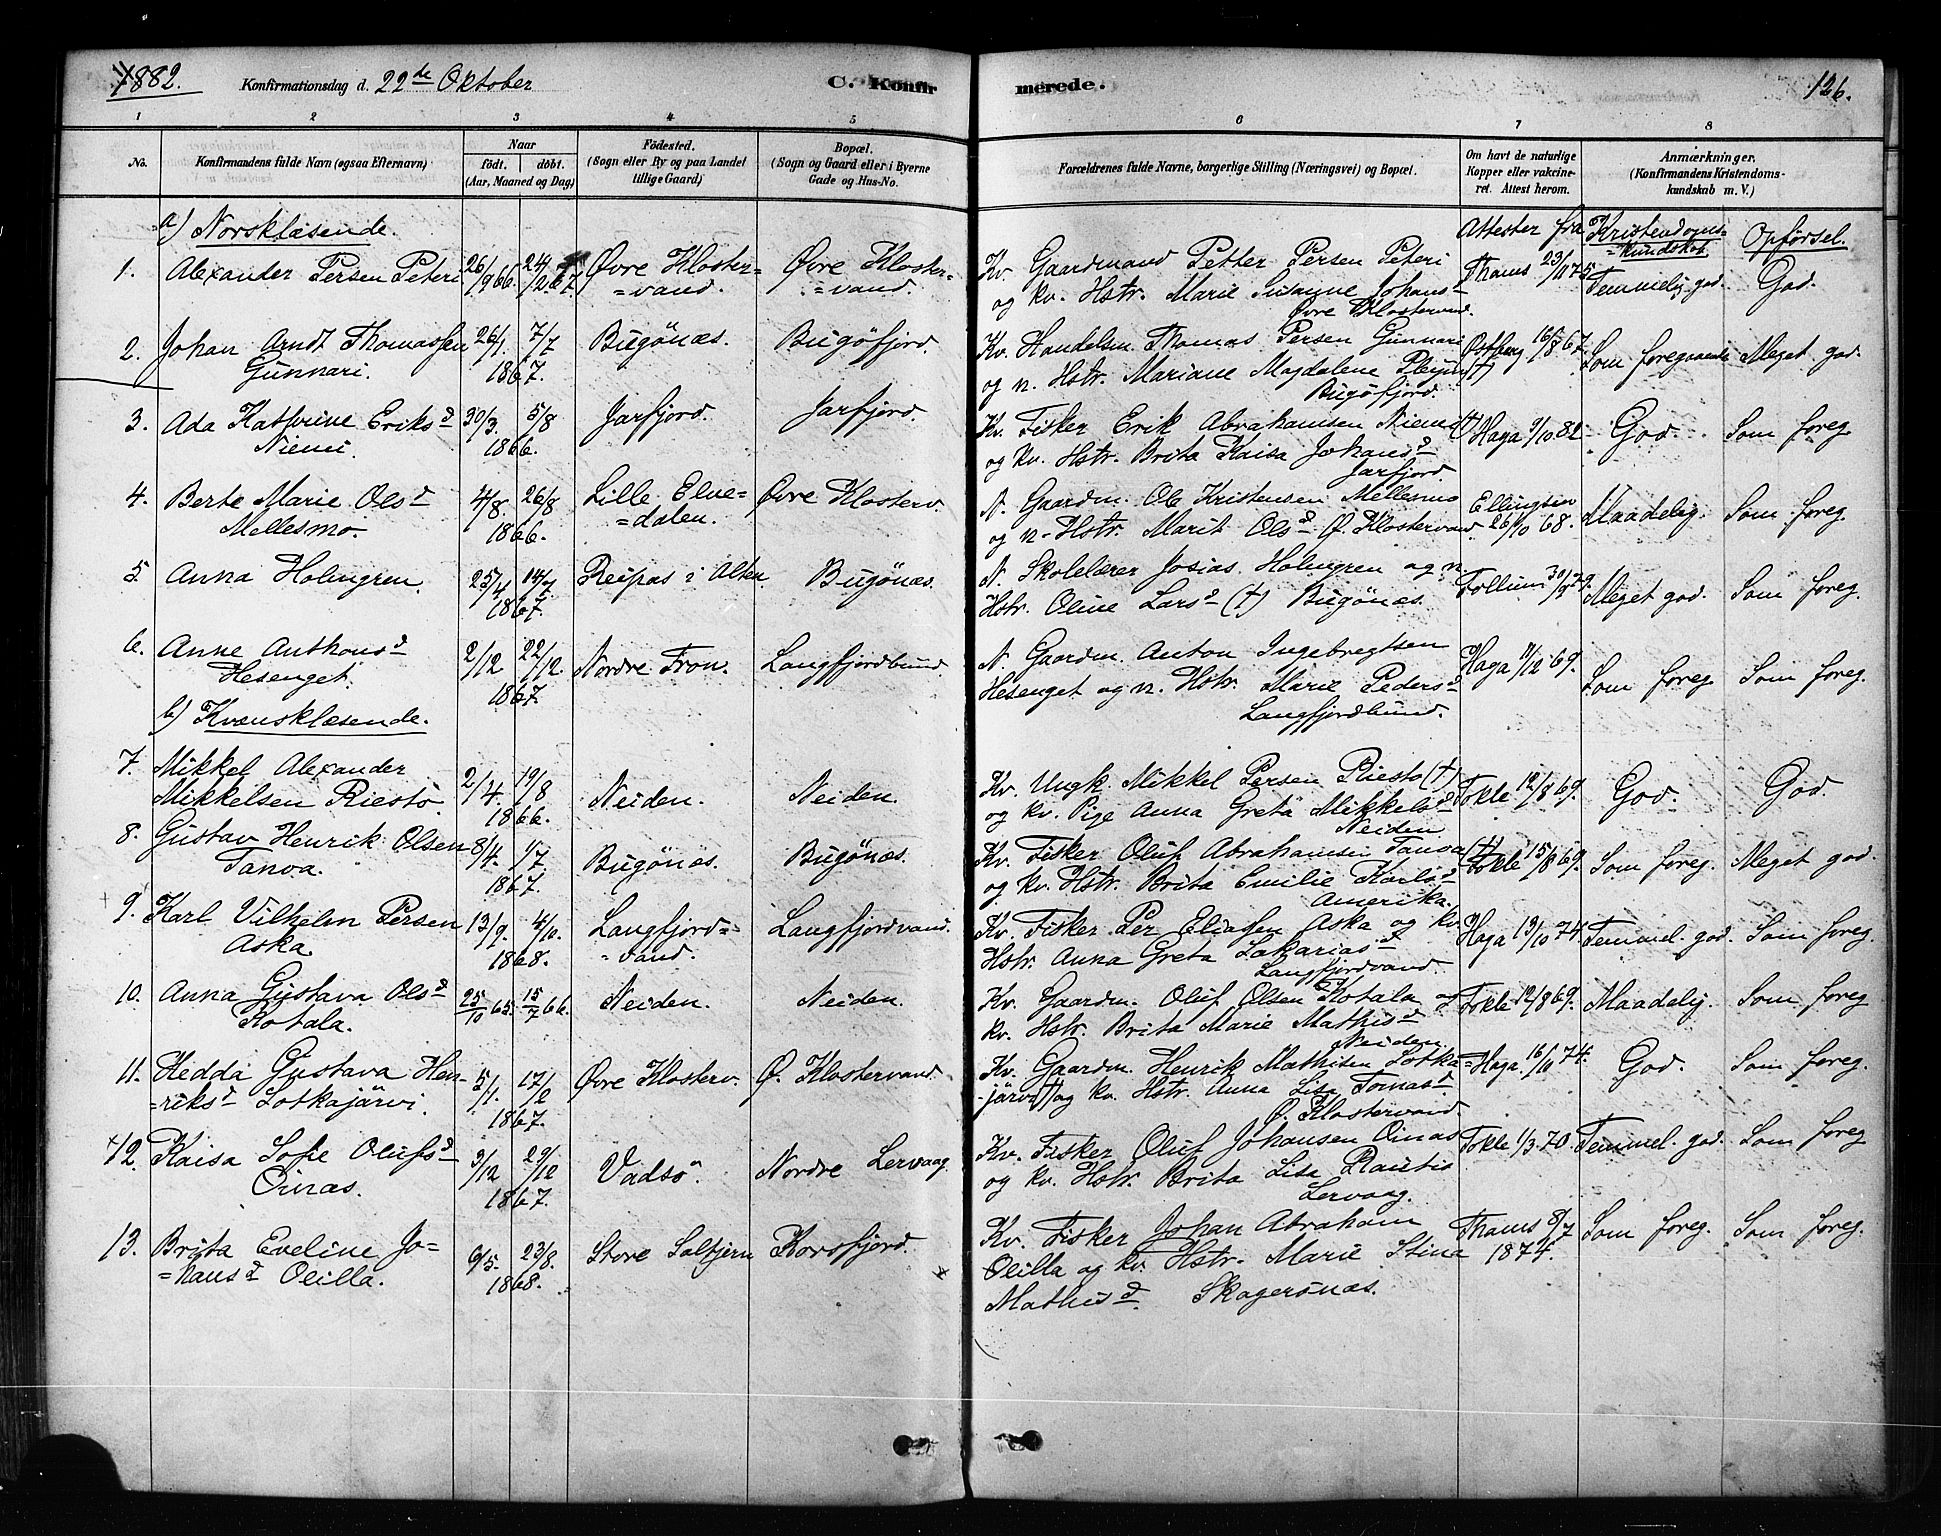 1882. Konfirmationsdag d. 22de Oktober C. Konfirmerede. 126.
1 2 3 4 5 6 7 8
No. Konfirmandens fulde Navn (ogsaa Efternavn)
Naar
født. døbt.
(Aar, Maaned og Dag)
Fødested.
(Sogn eller By og paa Landet
tillige Gaard)
Bopæl.
(Sogn og Gaard eller i Byerne
Gade og Hus-No.
Forældrenes fulde Navne, borgerlige Stilling (Næringsvei) og Bopæl.
Om havt de naturlige
Kopper eller vakcine-
ret. Attest herom.
Anmærkninger.
(Konfirmandens Kristendoms-
kundskab m. V.)
a) Norsklæsende.
Attester fra Kristendoms-
=kundskab Opførsel.
1. Alexander Persen Peteri 26/9 66. 24/12 67. Øvre Kloster=
=vand. Øvre Kloster=
=vand. Kv. Gaardmand Petter Persen Peteri
og kv. Hstr. Marie Susanne Johans-
Øvre Klostervand. Thams 23/11 75 Temmelig god. God.
2. Johan Arndt Thomassen
Gunnari. 26/1. 7/7
1867. Bugönæs. Bugöfjord. Kv. Handelsm. Thomas Persen Gunnari
og n. Hstr. Mariane Magdalene (†)
Bugöfjord. Østberg 16/8 67. Som foregaaende Meget god.
3. Ada Kathrine Eriksd
Niemi. 30/3. 5/8
1866. Jarfjord. Jarfjord. Kv. Fisker Erik Abrahamsen Niemi (†)
og kv. Hstr. Brita Kaisa Johansd
Jarfjord. Haga 9/10 82 God. Som foreg.
4. Berte Marie Olsd
Mellesmo. 4/8. 26/8
1866. Lille Elve=
=dalen. Øvre Klosterv. N. Gaardm. Ole Kristensen Mellesmo
og n. Hstr. Marit Olsd Ø. Klostervand. Ellingsen
26/10 68. Maadelig. Som foreg.
5. Anna Holmgren. 25/4 14/7
1867. Reipas i Alten Bugönæs. N. Skolelærer Josias Holmgren og n.
Hstr. Oline Larsd (†) Bugönæs. Follum 30/9 79. Meget god. Som foreg.
6. Anne Anthonsd
Hesenget. 2/12 22/12.
1867. Nordre Fron. Langfjordbund. N. Gaardm. Anton Ingebregtsen
Hesenget og n. Hstr. Marie Pedersd
Langfjordbund. Haga 11/12 69. Som foreg. Som foreg.
b) Kvænsklæsende.
7. Mikkel Alexander
Mikkelsen Riestö. 2/4. 19/8
1866. Neiden. Neiden. Kv. Ungk. Mikkel Persen Riesto (†)
og kv. Pige Anna Greta Mikkelsd
Neiden. Fokle 12/8 69. God. God.
8. Gustav Henrik Olsen
Tanva. 8/4. 1/7
1867. Bugönæs. Bugönæs. Kv. Fisker Oluf Abrahamsen Tanva (†)
og kv. Hstr. Brita Emilie Karlsd
Amerika. Fokle 15/8 69. Som foreg. Meget god.
9. Karl Vilhelm Persen
Aska. 13/9. 4/10.
1868. Langfjord=
=vand. Langfjordvand. Kv. Fisker Per Eliassen Aska og kv.
Hstr. Anna Greta Sakariasd
Langfjordvand. Haga 13/10 74. Temmel. god. Som foreg.
10. Anna Gustava Olsd
Kotala. 25/10 65. 15/7 66. Neiden. Neiden. Kv. Gaardm. Oluf Olsen Kotala og
kv. Hstr. Brita Marie Mathisd
Neiden. Fokle 12/8 69. Maadelig. Som foreg.
11. Hedda Gustava Hen-
=riksd Lotkajärvi. 5/1. 17/2
1867. Øvre Klosterv. Ø. Klostervand. Kv. Gaardm. Henrik Mathisen Lotka=
-järvi (†) og kv. Hstr. Anna Lisa Tomasd
Ø. Klostervand. Haga 16/11 74. God. Som foreg.
12. Kaisa Sofie Olufsd
Oinas. 3/12 29/12
1867. Vadsö. Nordre Lervaag. Kv. Fisker Oluf Johansen Oinas
og kv. Hstr. Brita Lisa Rautio
Lervaag. Fokle 1/3 70. Temmel. god. Som foreg.
13. Brita Eveline Jo=
=hansd Olilla. 9/5. 23/8.
1868. Store Saltjern Korsfjord. Kv. Fisker Johan Abraham
Olilla og kv. Hstr. Marie Stina
Mathisd. Skagerönæs. Thams 8/7
1874. Som foreg. Som foreg.